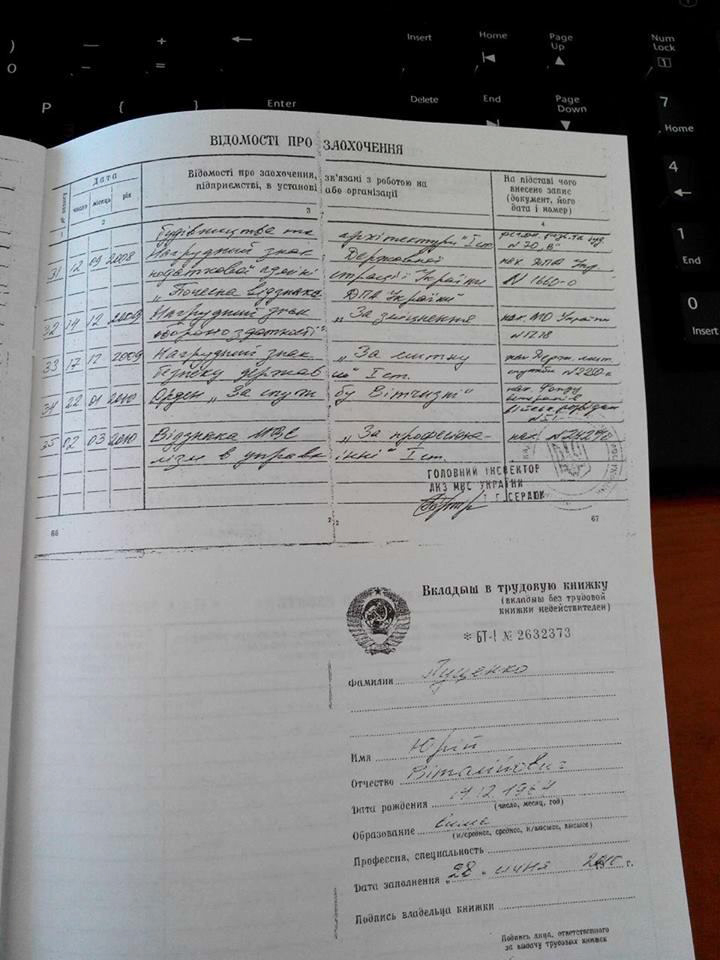 )
—
+
←
Insert
Home
Page Up
Num Lock
0
-
=
P
{
}
Enter
Delete
End
Page Down
7
Home
4
←
1
End
0
Insert
ВІДОМОСТІ ПРО ЗАОХОЧЕННЯ
Дата
число місяць рік
Відомості про заохочення, зв'язані з роботою на
підприємстві, в установі або організації
На підставі чого
внесено запис
(документ, його
дата і номер)
1 2 3 4
будівництва та архітектури" І ст.
31 12 09 2008 Нагрудний знак Державної
податкової адміністрації України
„Почесна відзнака ДПА України"
нак. ДПА Укр
N 1660-о
32 14 12 2009 Нагрудний знак „За зміцнення
обороноздатності"
нак. МО України
33 17 12 2009 Нагрудний знак „За митну
безпеку держави" І ст.
нак. Держ. мит.
служби
34 22 01 2010 Орден „За службу Вітчизні"
нак. Фонду
ветеранів
35 02 03 2010 Відзнака МВС „За професіоналізм в управлінні" І ст.
нак.
ГОЛОВНИЙ ІНСПЕКТОР
ДКЗ МВС УКРАЇНИ
Т Г СЕРДЮК
66
67
Вкладыш в трудовую книжку
(вкладыш без трудовой
книжки недействителен)
* БТ-I № 2632373
Фамилия Луценко
Имя Юрій
Отчество Віталійович
Дата рождения 14.12.1964
(число, месяц, год)
Образование вища
(н/среднее, среднее, н/высшее, высшее)
Профессия, специальность
Дата заполнения „28" июня 2010 г.
Подпись владельца книжки
Подпись лица, ответственного
за выдачу трудовых книжек